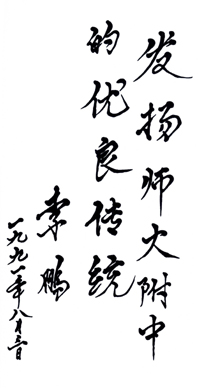 发扬师大附中
的优良传统
李鹏
一九九一年八月三日